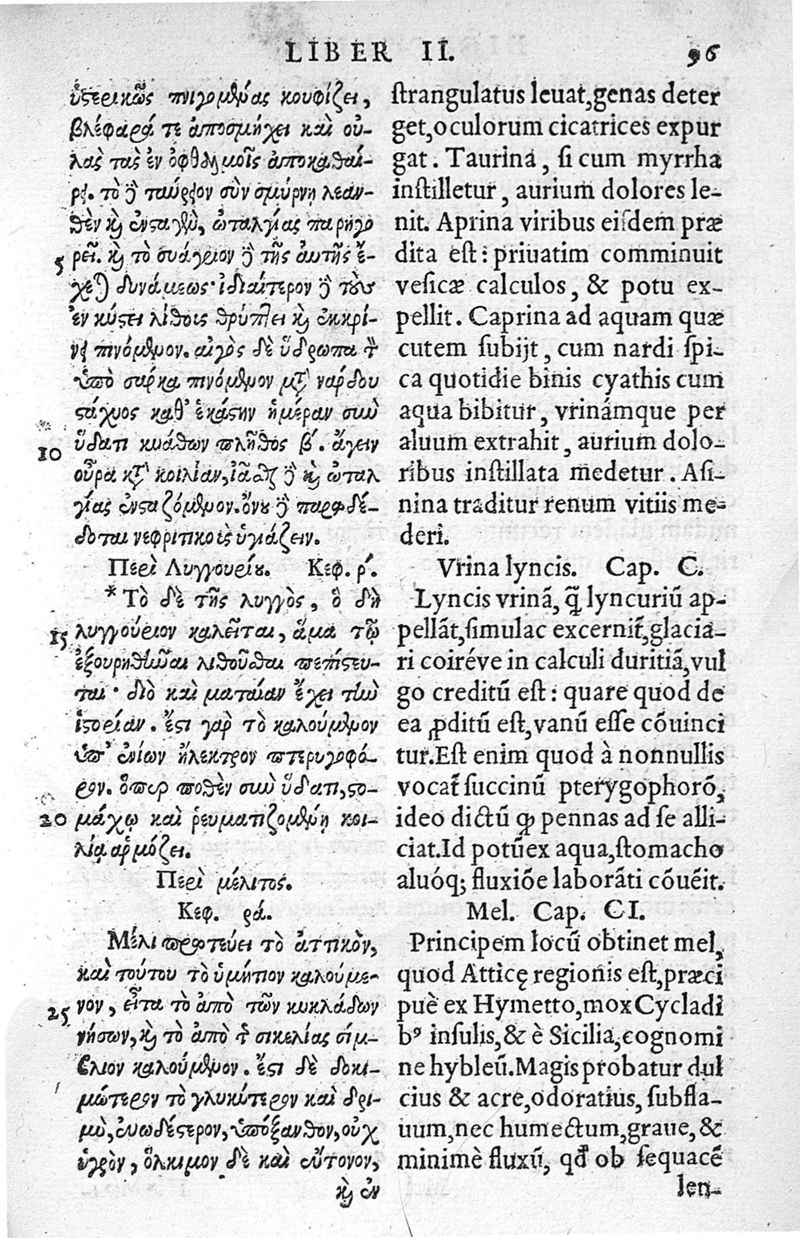 LIBER II. 96
ὑστερικῶς πνιγομένας κουφίζει,
βλέφαρά τε ἀποσμήχει καὶ οὐ-
λὰς τὰς ἐν ὀφθαλμοῖς ἀποκαθαί-
ρει. τὸ δὲ ταύρειον σὺν σμύρνῃ λεαν-
θὲν καὶ ἐνσταχθὲν, ὠταλγίας παρηγο
5 ρεῖ. καὶ τὸ συάγρειον δὲ τῆς αὐτῆς ἔ-
χεται δυνάμεως· ἰδιαίτερον δὲ τοὺς
ἐν κύστει λίθοις θρύπτει καὶ ἐκκρί-
νει πινόμενον. αἰγὸς δὲ ὕδρωπα τὸν
ὑπὸ σάρκα πινόμενον μετὰ νάρδου
στάχυος καθ' ἑκάστην ἡμέραν σὺν
10 ὕδατι κυάθων πλῆθος β´. ἄγειν
οὖρα κατὰ κοιλίαν, ἰᾶσθαι δὲ καὶ ὠταλ
γίας ἐνσταζόμενον. ὄνου δὲ παραδέ-
δοται νεφριτικοὺς ὑγιάζειν.
Περὶ Λυγγουρίου. Κεφ. ρ´.
*Τὸ δὲ τῆς λυγγὸς, ὃ δὴ
15 λυγγούριον καλεῖται, ἅμα τῷ
ἐξουρηθῆναι λιθοῦσθαι πεπίστευ-
ται· διὸ καὶ ματαίαν ἔχει τὴν
ἱστορίαν. ἔστι γὰρ τὸ καλούμενον
ὑπ' ἐνίων ἤλεκτρον πτερυγοφό-
ρον. ὅπερ ποθὲν σὺν ὕδατι, στο-
20 μάχῳ καὶ ῥευματιζομένῃ κοι-
λίᾳ ἁρμόζει.
Περὶ μέλιτος.
Κεφ. ρα´.
Μέλι πρωτεύει τὸ ἀττικὸν,
καὶ τούτου τὸ ὑμήτιον καλούμε-
25 νον, εἶτα τὸ ἀπὸ τῶν κυκλάδων
νήσων, καὶ τὸ ἀπὸ τῆς σικελίας σίμ-
βλιον καλούμενον. ἔστι δὲ δοκι-
μώτερον τὸ γλυκύτερον καὶ δρι-
μὺ, εὐωδέστερον, ὑπόξανθον, οὐχ
ὑγρὸν, ὅλκιμον δὲ καὶ εὔτονον,
καὶ ἐν
strangulatus leuat, genas deter
get, oculorum cicatrices expur
gat. Taurina, si cum myrrha
instilletur, aurium dolores le-
nit. Aprina viribus eisdem præ
dita est: priuatim comminuit
vesicæ calculos, & potu ex-
pellit. Caprina ad aquam quæ
cutem subijt, cum nardi spi-
ca quotidie binis cyathis cum
aqua bibitur, vrinámque per
aluum extrahit, aurium dolo-
ribus instillata medetur. Asi-
nina traditur renum vitiis me-
deri.
Vrina lyncis. Cap. C.
Lyncis vrinã, q̃ lyncuriũ ap-
pellãt, simulac excernit̃, glacia-
ri coiréve in calculi duritiã, vul
go creditũ est: quare quod de
ea ꝓditũ est, vanũ esse cõuinci
tur. Est enim quod à nonnullis
vocat̃ succinũ pterygophorõ,
ideo dictũ ꝙ pennas ad se alli-
ciat. Id potũ ex aqua, stomacho
aluóq; fluxiõe laborãti cõuẽit.
Mel. Cap. CI.
Principem locũ obtinet mel,
quod Atticę regionis est, præci
puè ex Hymetto, mox Cycladi
bꝰ insulis, & è Sicilia, cognomi
ne hybleũ. Magis probatur dul
cius & acre, odoratius, subfla-
uum, nec humectum, graue, &
minimè fluxũ, qđ ob sequacẽ
len-